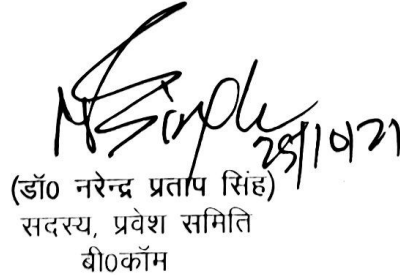 NSingh
28/10/21
(डॉ0 नरेन्द्र प्रताप सिंह)
सदस्य, प्रवेश समिति
बी0कॉम